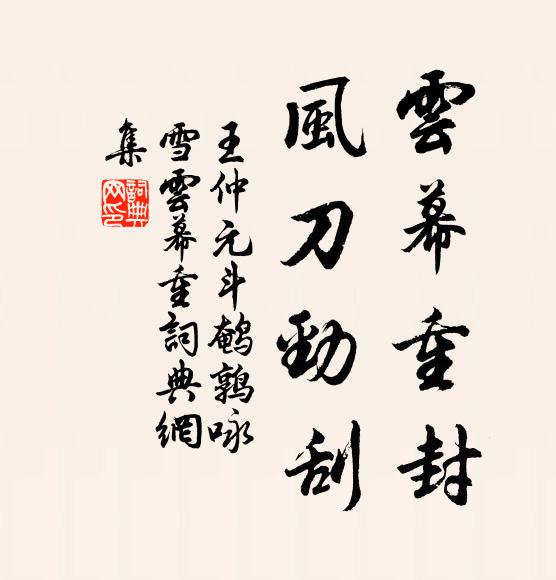 雲幕重封
風刀勁刮
王仲元斗鹌鹑咏
雪雲幕重詞典網
集
詞典网印